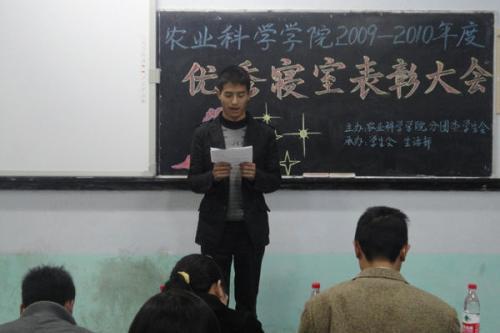 农业科学学院2009-2010年度
优秀寝室表彰大会
主办:农业科学学院分团委学生会
承办:学生会 生活部